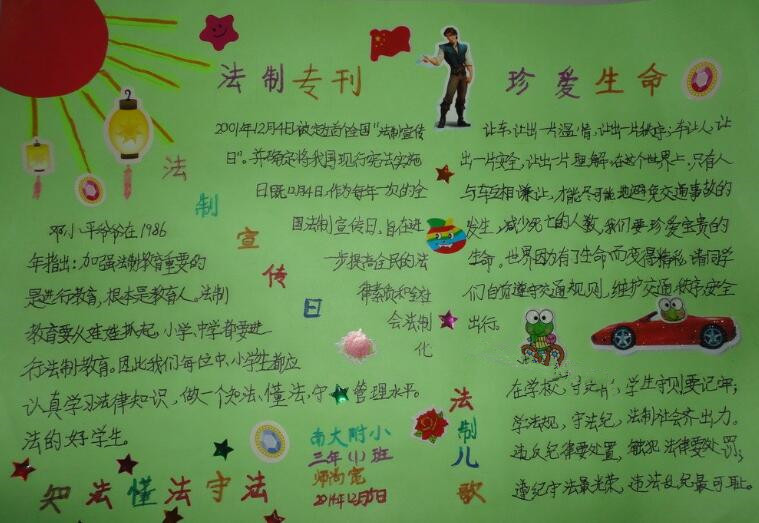 法制专刊
珍爱生命
2001年12月4日被定为首个全国“法制宣传
日”。并确定将我国现行宪法实施
日既12月4日，作为每年一次的全
国法制宣传日，旨在进
一步提高全民的法
律素质和全社
会法制
化
管理水平。
法制宣传日
邓小平爷爷在1986
年指出：加强法制教育重要的
是进行教育，根本是教育人。法制
教育要从娃娃抓起，小学、中学都要进
行法制教育。因此我们每位中、小学生都应
认真学习法律知识，做一个知法、懂法、守
法的好学生。
让车，让出一片温情，让出一片秩序；车让人，让
出一片安全，让出一片理解。在这个世界上，只有人
与车互相谦让，才能尽可能地避免交通事故的
发生，减少死亡的人数。我们要珍爱宝贵的
生命。世界因为有了生命而变得精彩。请同学
们自觉遵守交通规则，维护交通秩序，安全
出行。
法制儿歌
在学校，守交，学生守则要记牢；
学法规，守法纪，法制社会齐出力。
违反纪律要处置，触犯法律要处罚；
遵纪守法最光荣，违法乱纪最可耻。
南大附小
三年（1）班
师尚宽
2014年12月
知法懂法守法